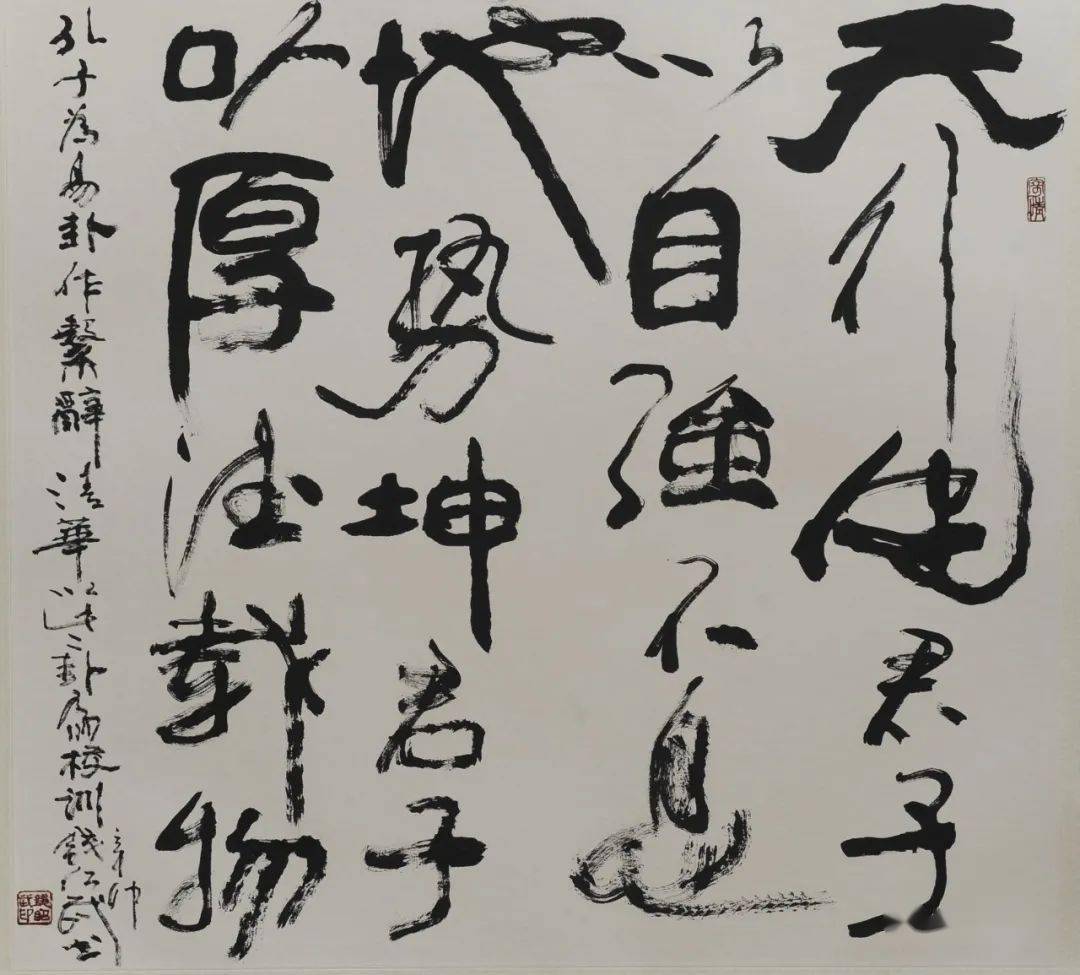 天行健君子
以自強不息
地势坤君子
以厚德載物
孔子為易卦作繫辭清華以此二卦為校訓錢绍武书
辛卯
錢紹武印